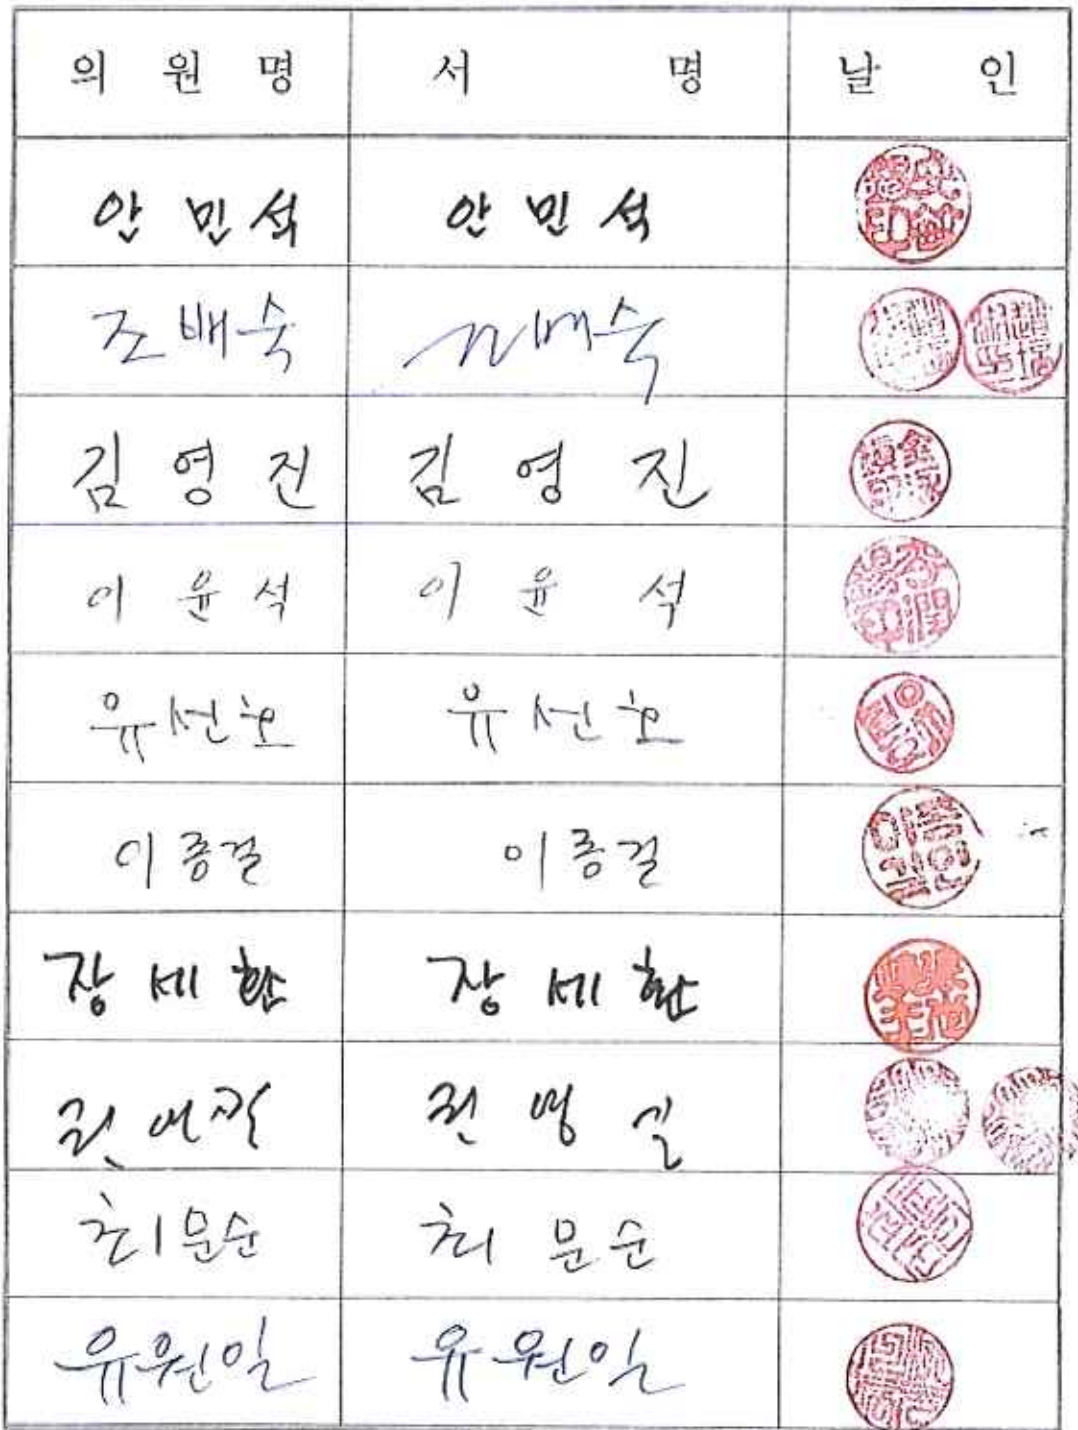 의 원 명 서 명 날 인
안 민 석 안 민 석
조배숙 조배숙
김 영 진 김 영 진
이 윤 석 이 윤 석
유선호 유선호
이종걸 이종걸 이종걸인
장세환 장세환
권영길 권영길
최문순 최문순
유원일 유원일